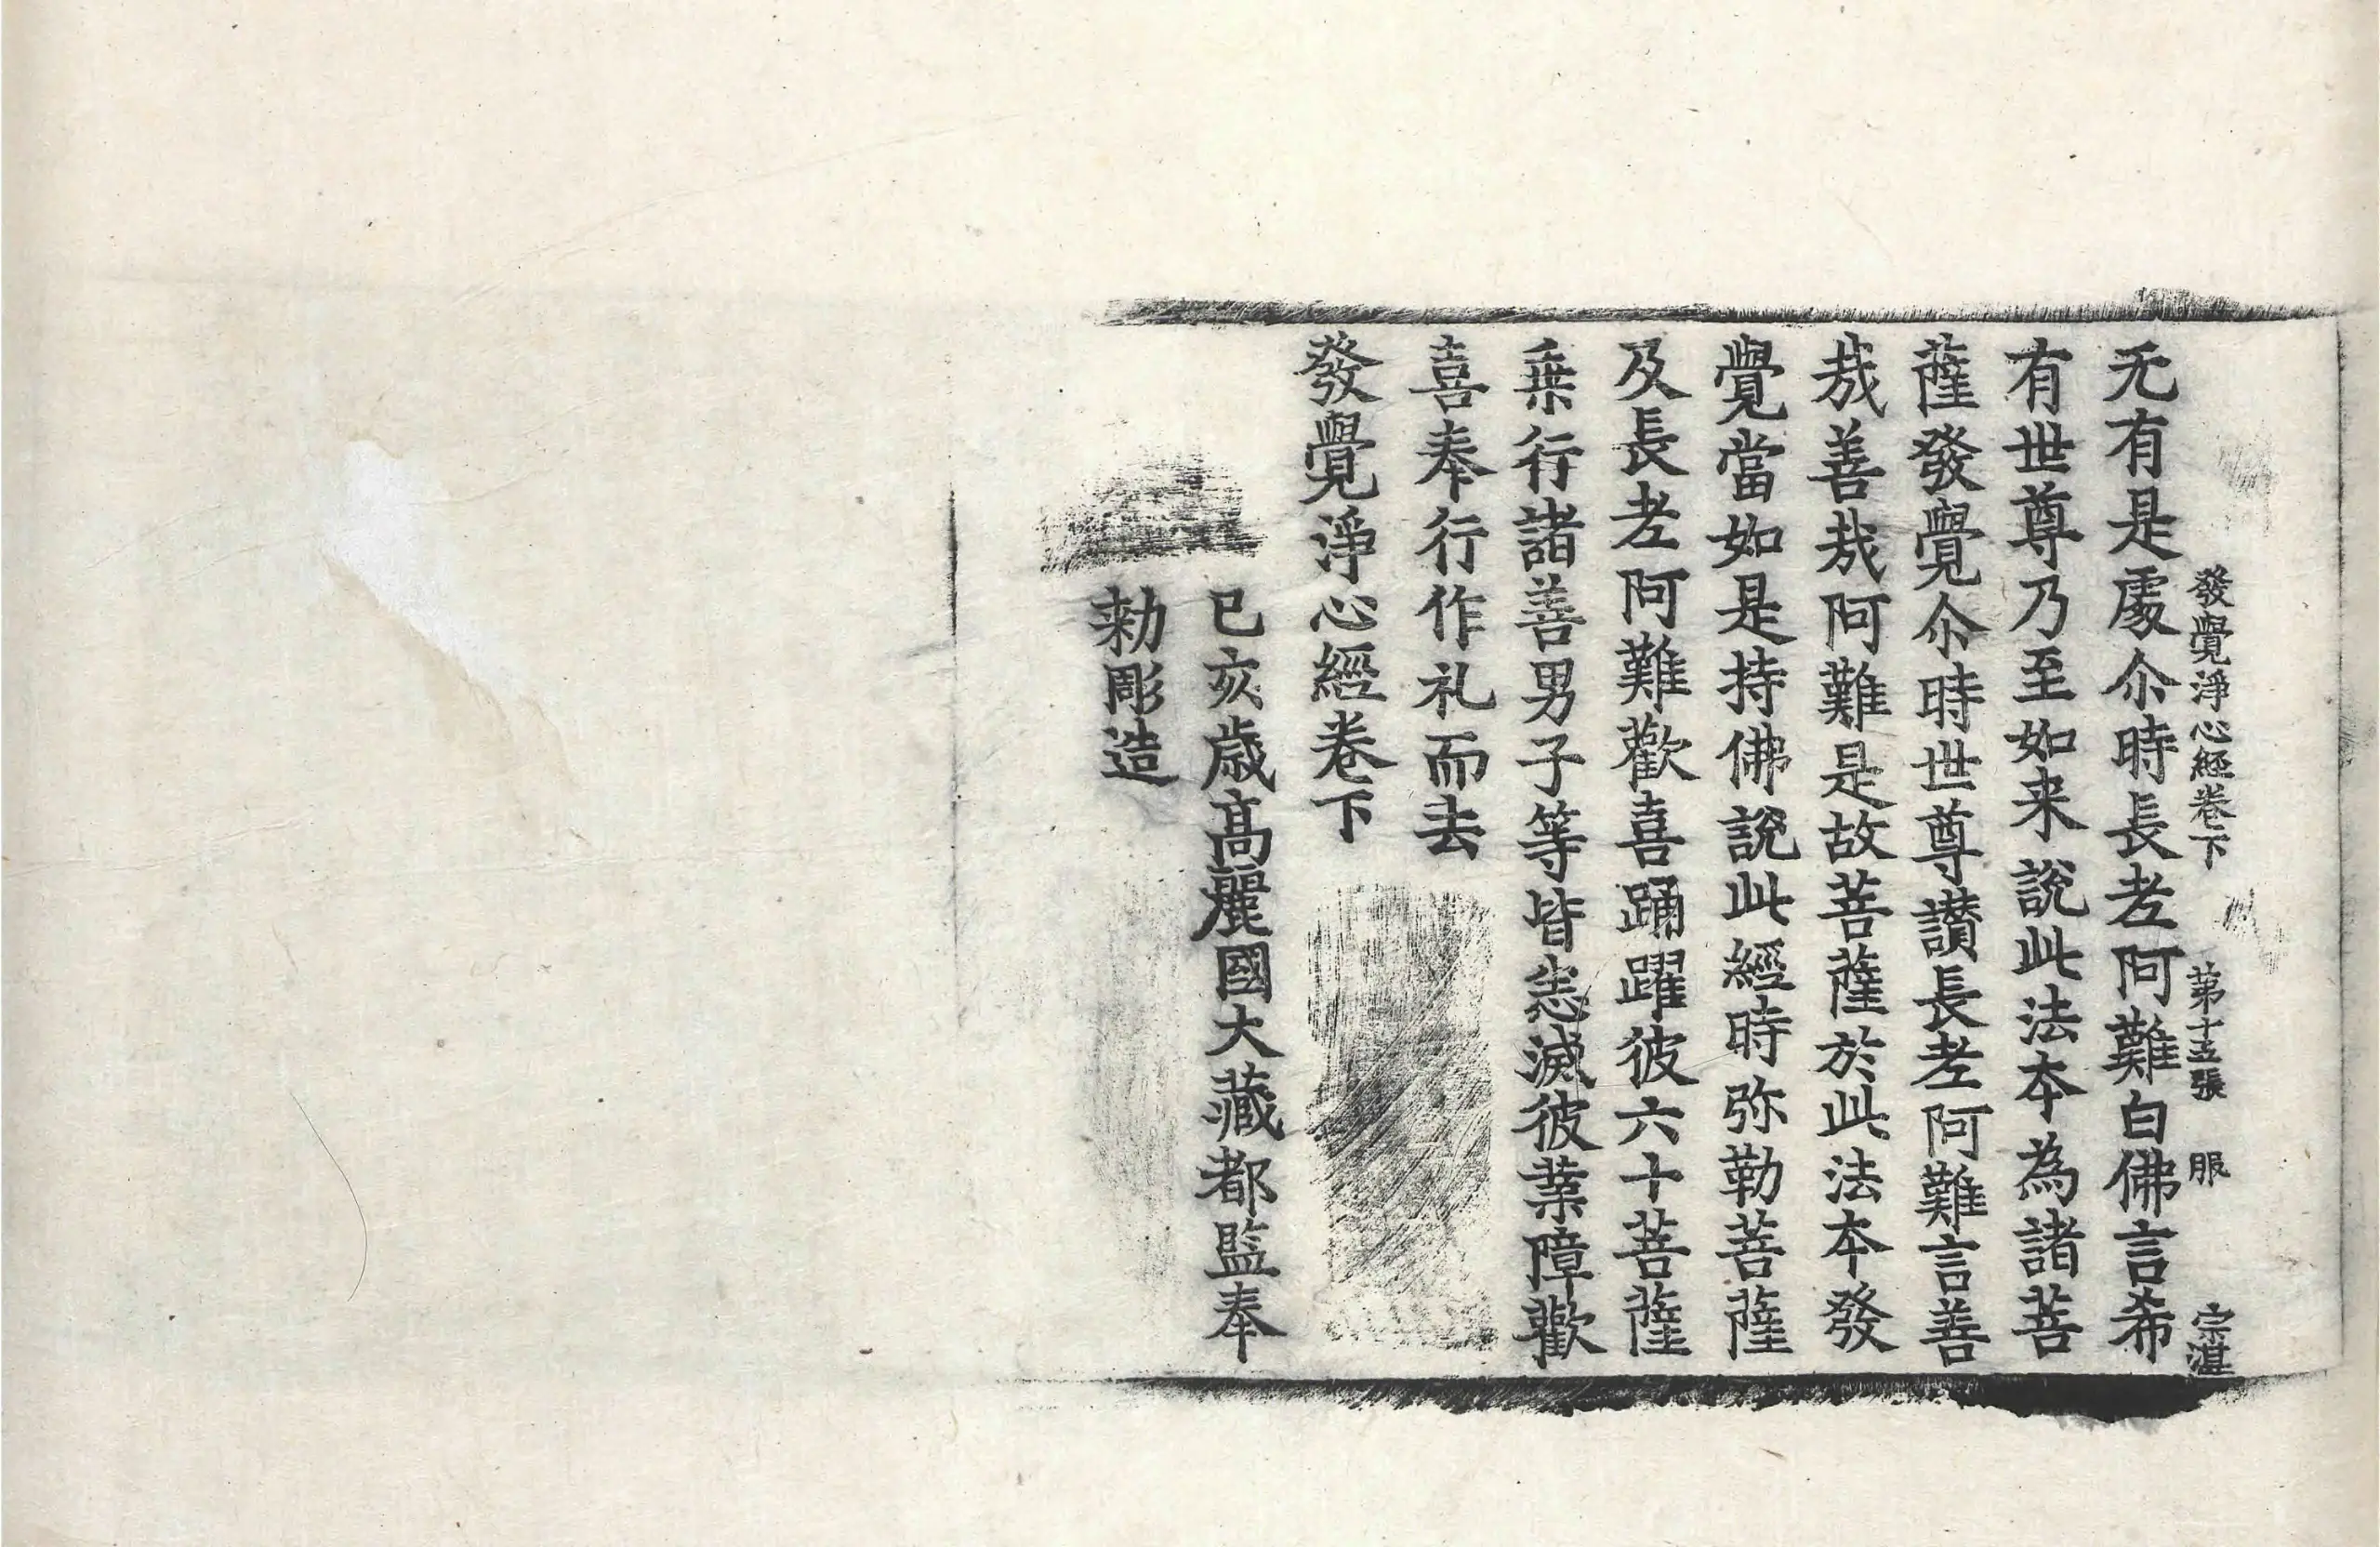 發覺淨心經卷下　第十五張　服　宗湛
无有是處尒時長老阿難白佛言希
有世尊乃至如来說此法本為諸菩
薩發覺尒時世尊讃長老阿難言善
㢤善㢤阿難是故菩薩於此法本發
覺當如是持佛說此經時弥勒菩薩
及長老阿難歡喜踊躍彼六十菩薩
乗行諸善男子等皆悉滅彼業障歡
喜奉行作礼而去
發覺淨心經卷下
己亥歲高麗國大藏都監奉
勑彫造